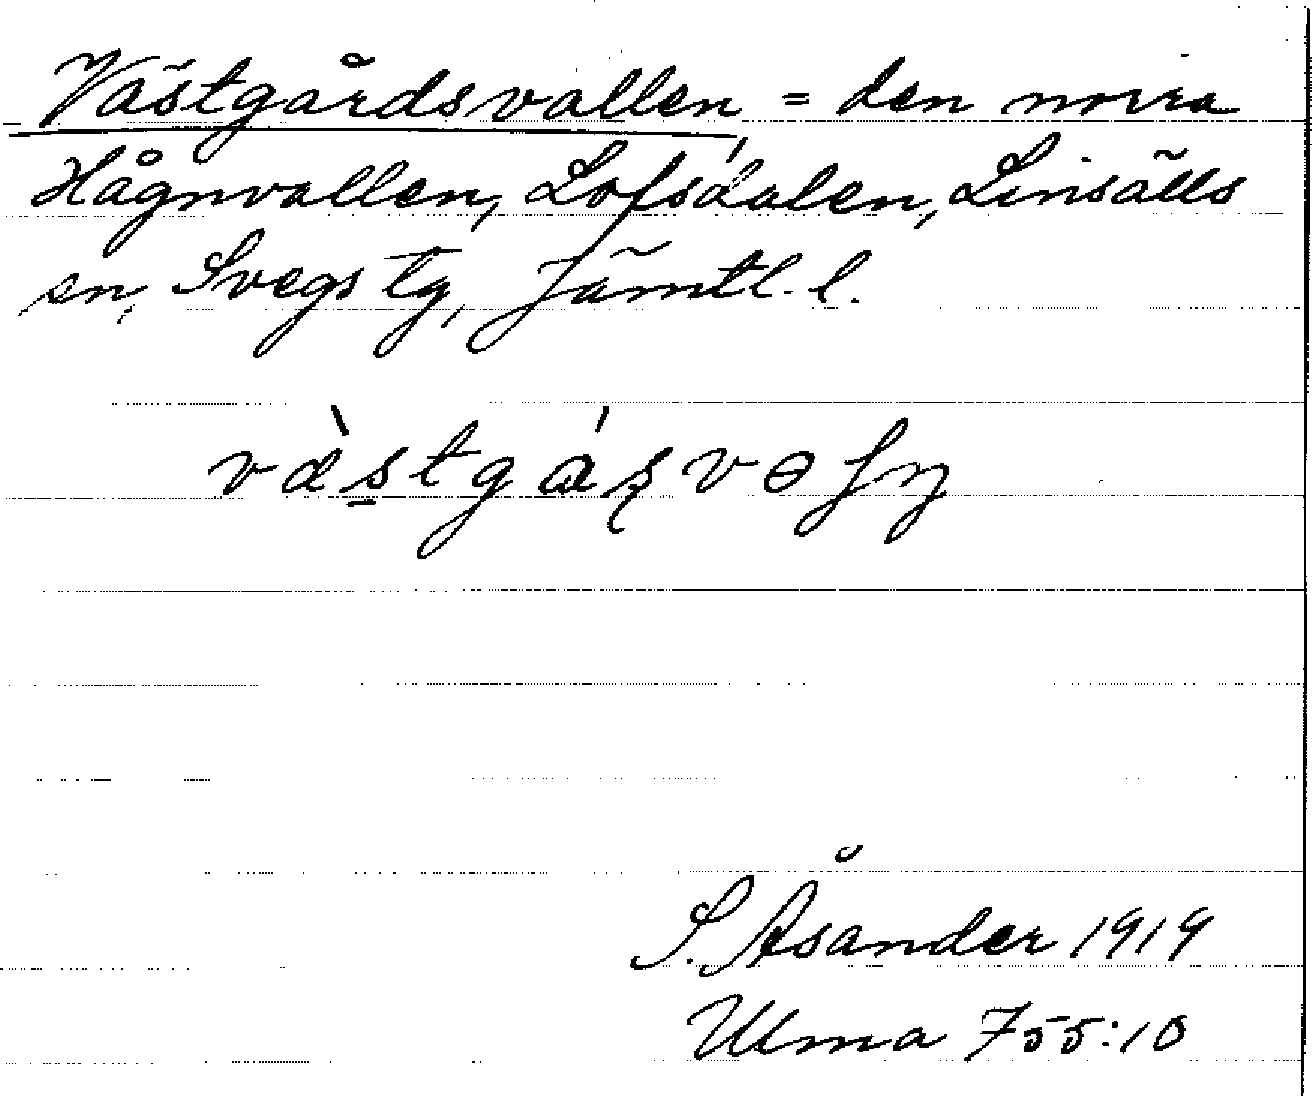 Västgårdsvallen, = den norra
Hågnvallen, Lofsdalen, Linsälls
sn, Svegs tg, Jämtl. l.
S. Åsander 1919
Ulma 755:10